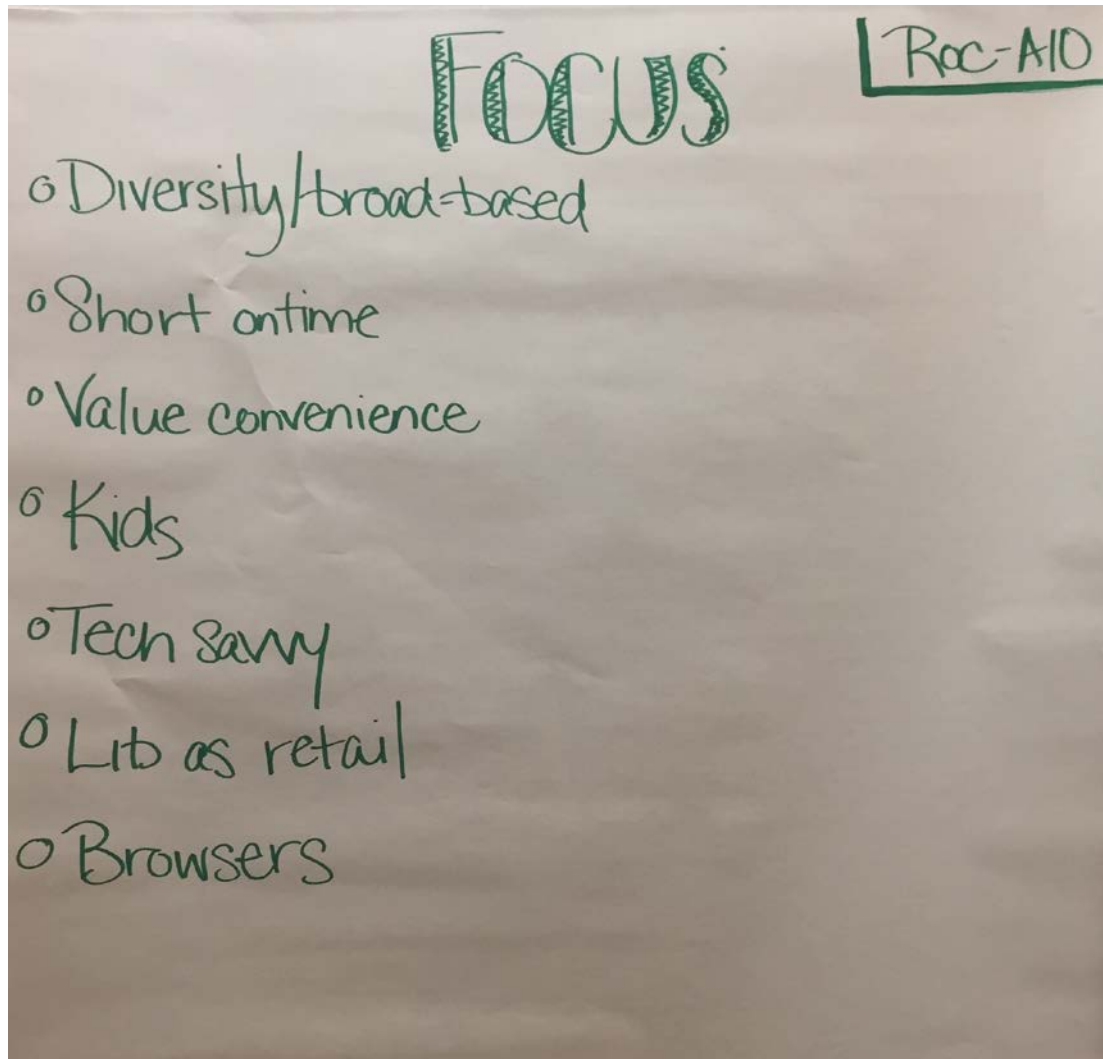 Focus
Roc-A10
Diversity/broad-based
Short ontime
Value convenience
Kids
Tech savvy
Lib as retail
Browsers